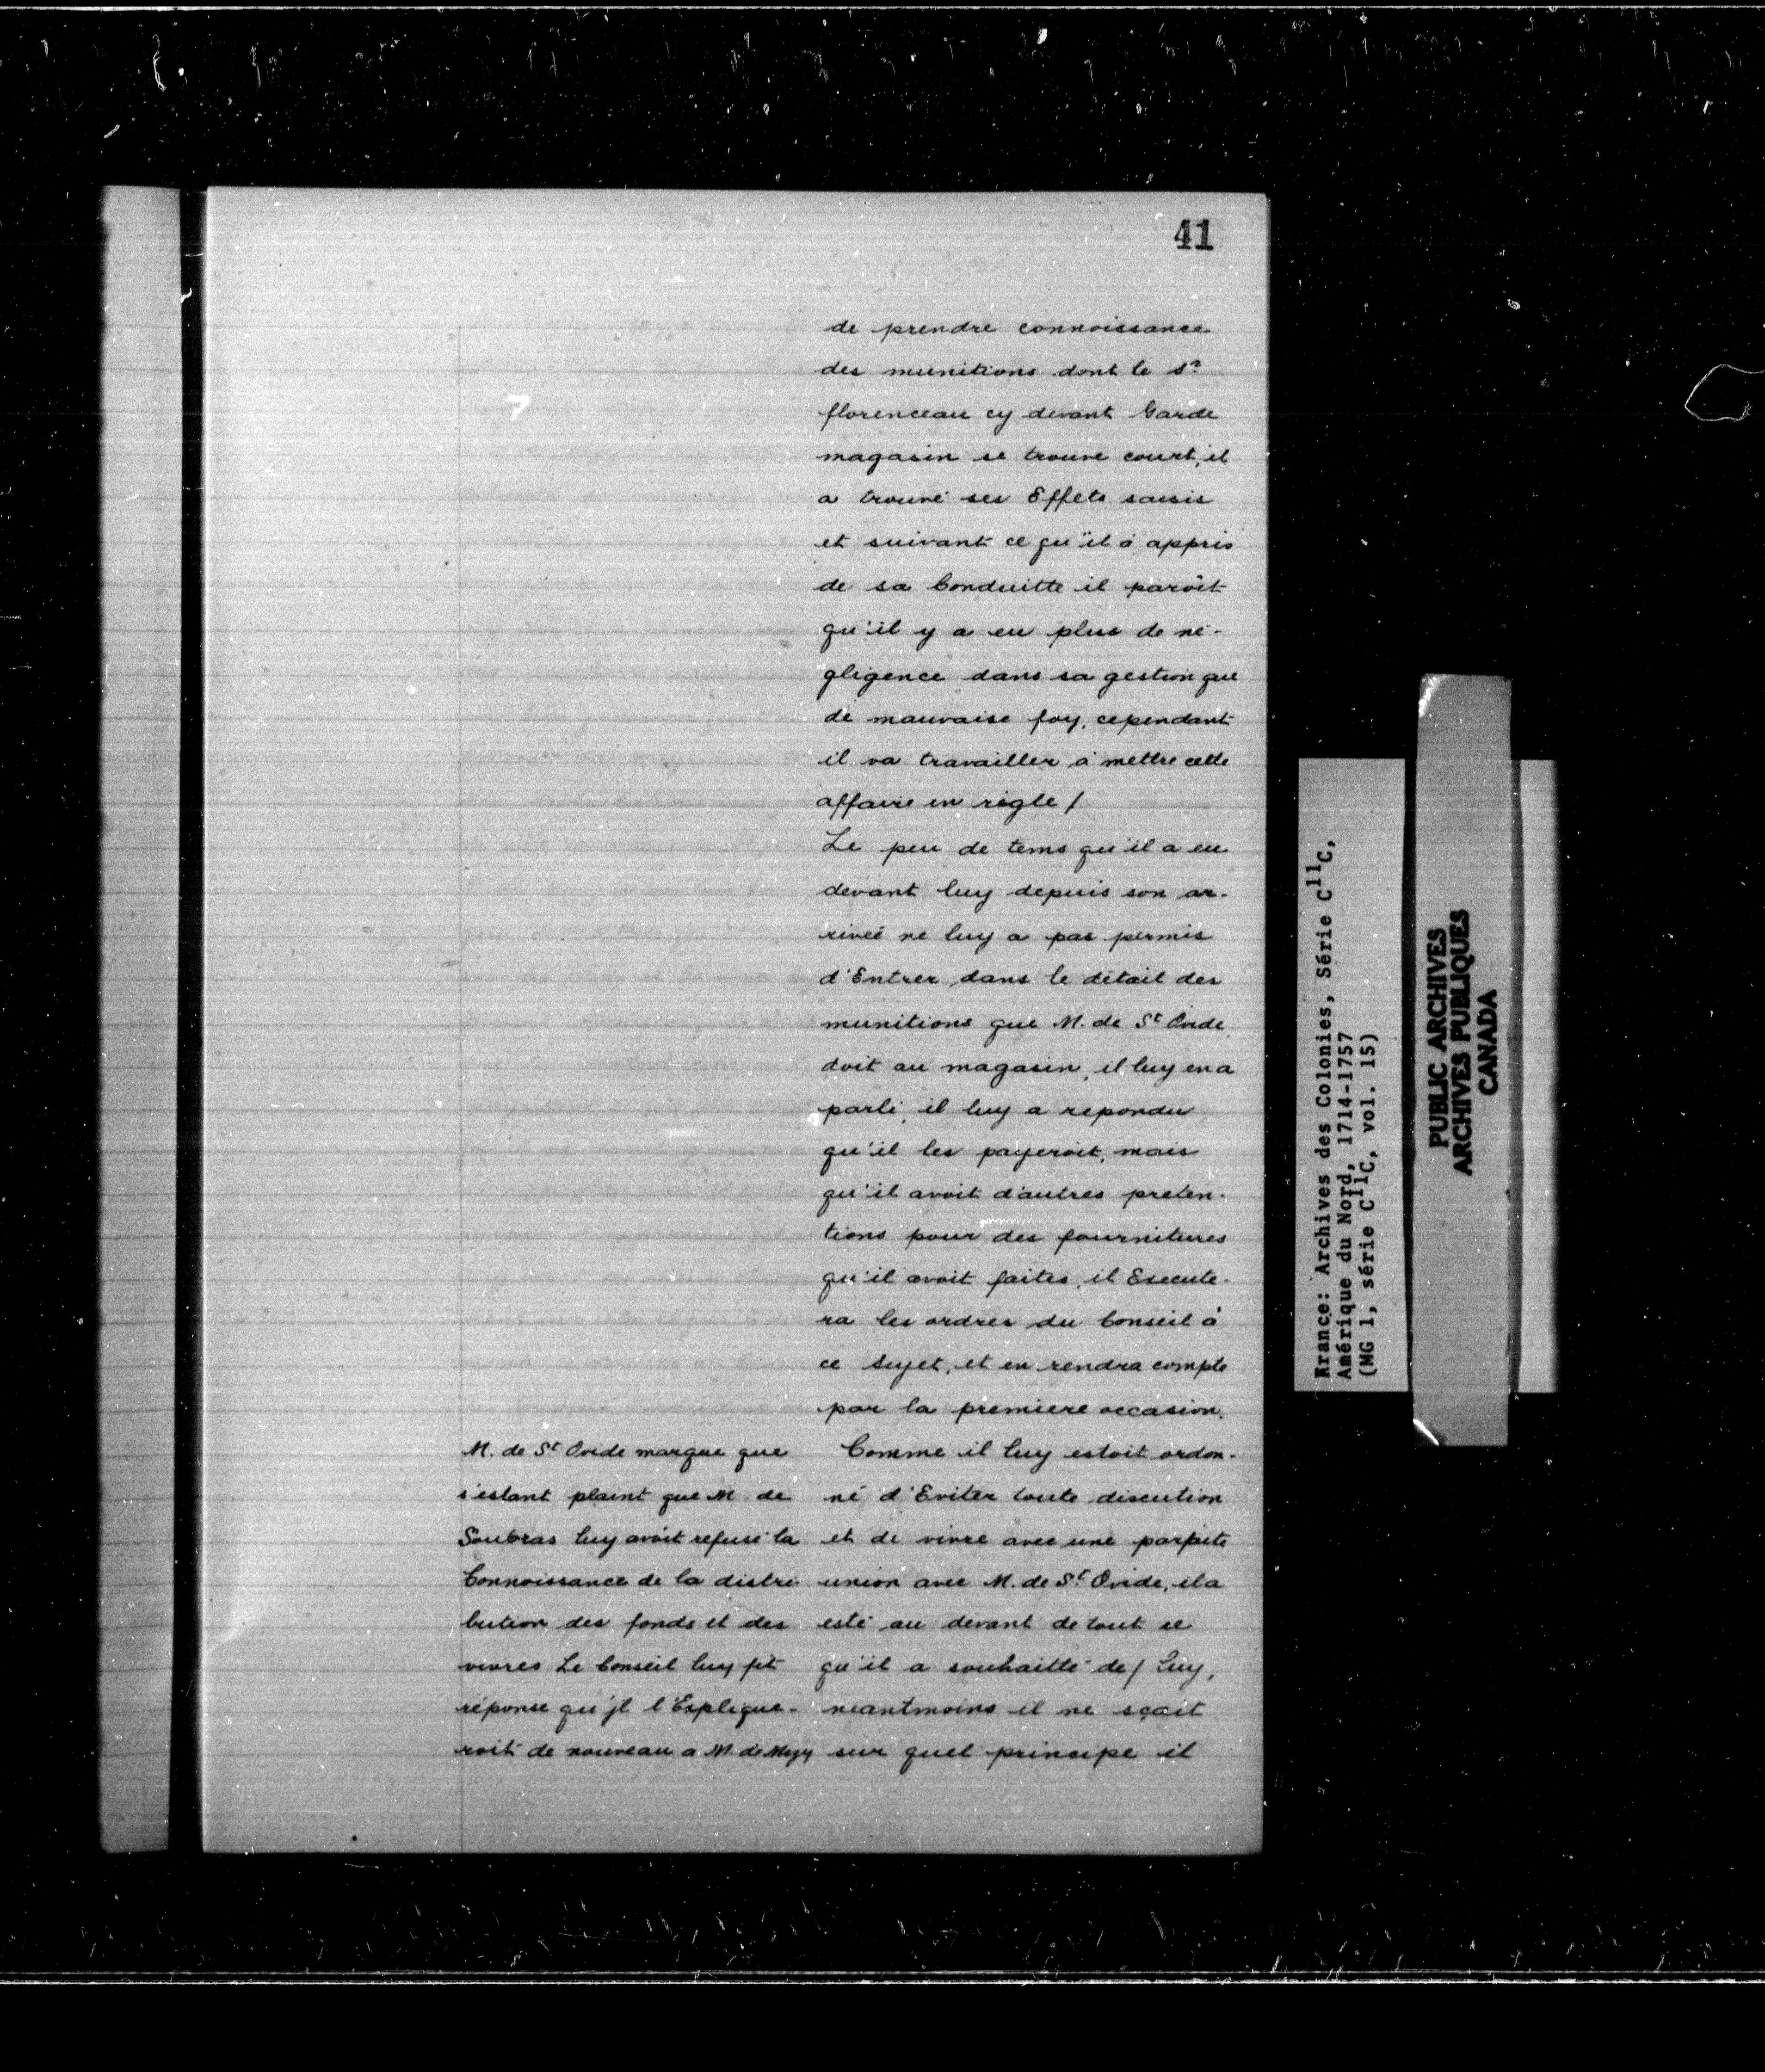 41
de prendre connoissance
des munitions dont le Sr
florenceau cy devant Garde
magasin se trouve court, il
a trouvé ses Effets saisis
et suivant ce qu'il à appris
de sa Conduitte il paroît
qu'il y a eu plus de né-
gligence dans sa gestion que
de mauvaise foy, cependant
il va travailler à mettre cette
affaire en règle /
Le peu de tems qu'il a eu
devant luy depuis son ar-
rivée ne luy a pas permis
d'Entrer dans le détail des
munitions que M. de St Ovide
doit au magasin, il luy en a
parlé, il luy a repondu
qu'il les payeroit, mais
qu'il avoit d'autres preten-
tions pour des fournitures
qu'il avoit faites, il Execute-
ra les ordres du Conseil à
ce sujet, et en rendra compte
par la premiere occasion.
M. de St Ovide marque que
s'estant plaint que M. de
Soubras luy avoit refusé la
Connoissance de la distri
bution des fonds et des
vivres Le Conseil luy fit
réponse qu'jl l'Explique-
roit de nouveau a M. de Mezy
Comme il luy estoit ordon-
né d'Eviter toute discution
et de vivre avec une parfaite
union avec M. de St Ovide, il a
esté au devant de tout ce
qu'il a souhaitté de / Luy,
neantmoins il ne sçait
sur quel principe il
France: Archives des Colonies, Série C11C,
Amérique du Nord, 1714-1757
(MG 1, série C11C, vol. 15)
PUBLIC ARCHIVES
ARCHIVES PUBLIQUES
CANADA